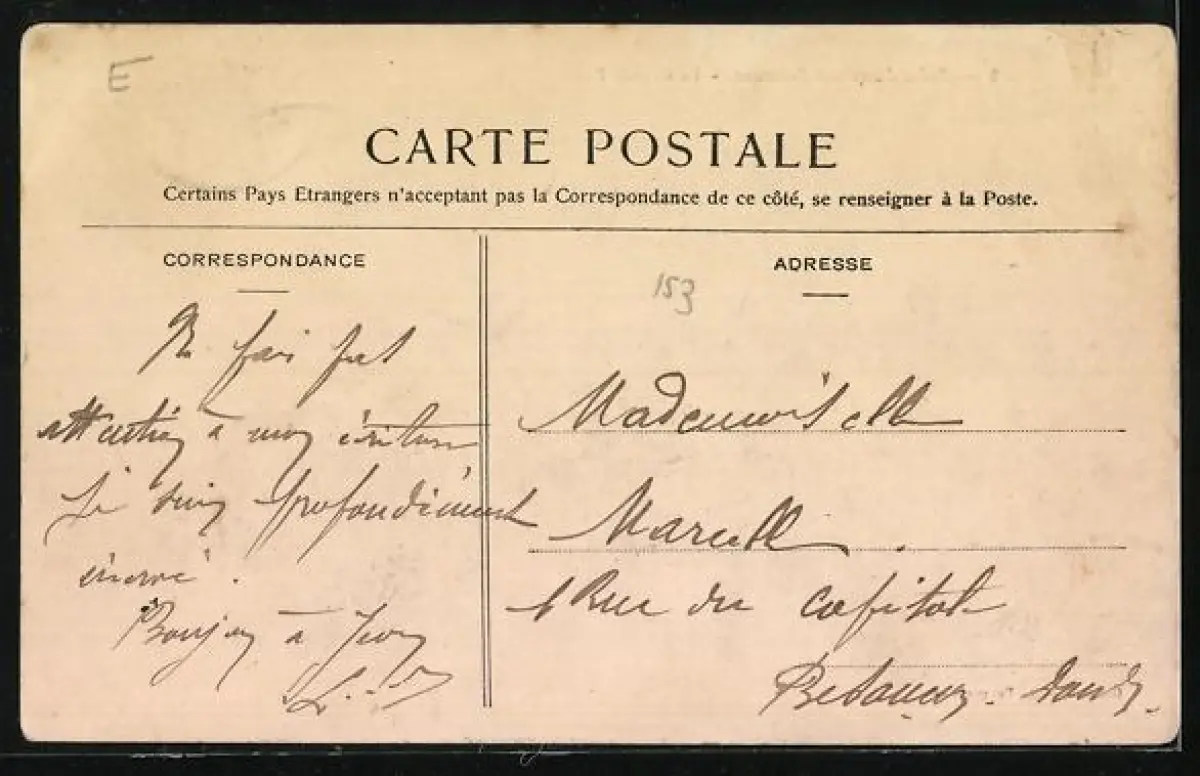 E
CARTE POSTALE
Certains Pays Etrangers n'acceptant pas la Correspondance de ce côté, se renseigner à la Poste.
CORRESPONDANCE
Ne fais pas
attention à mon écriture
Je suis profondément
énervé.
Bonjour à
ADRESSE
153
Mademoiselle
Marcelle
1 Rue du Capitole
Besançon. Doubs.